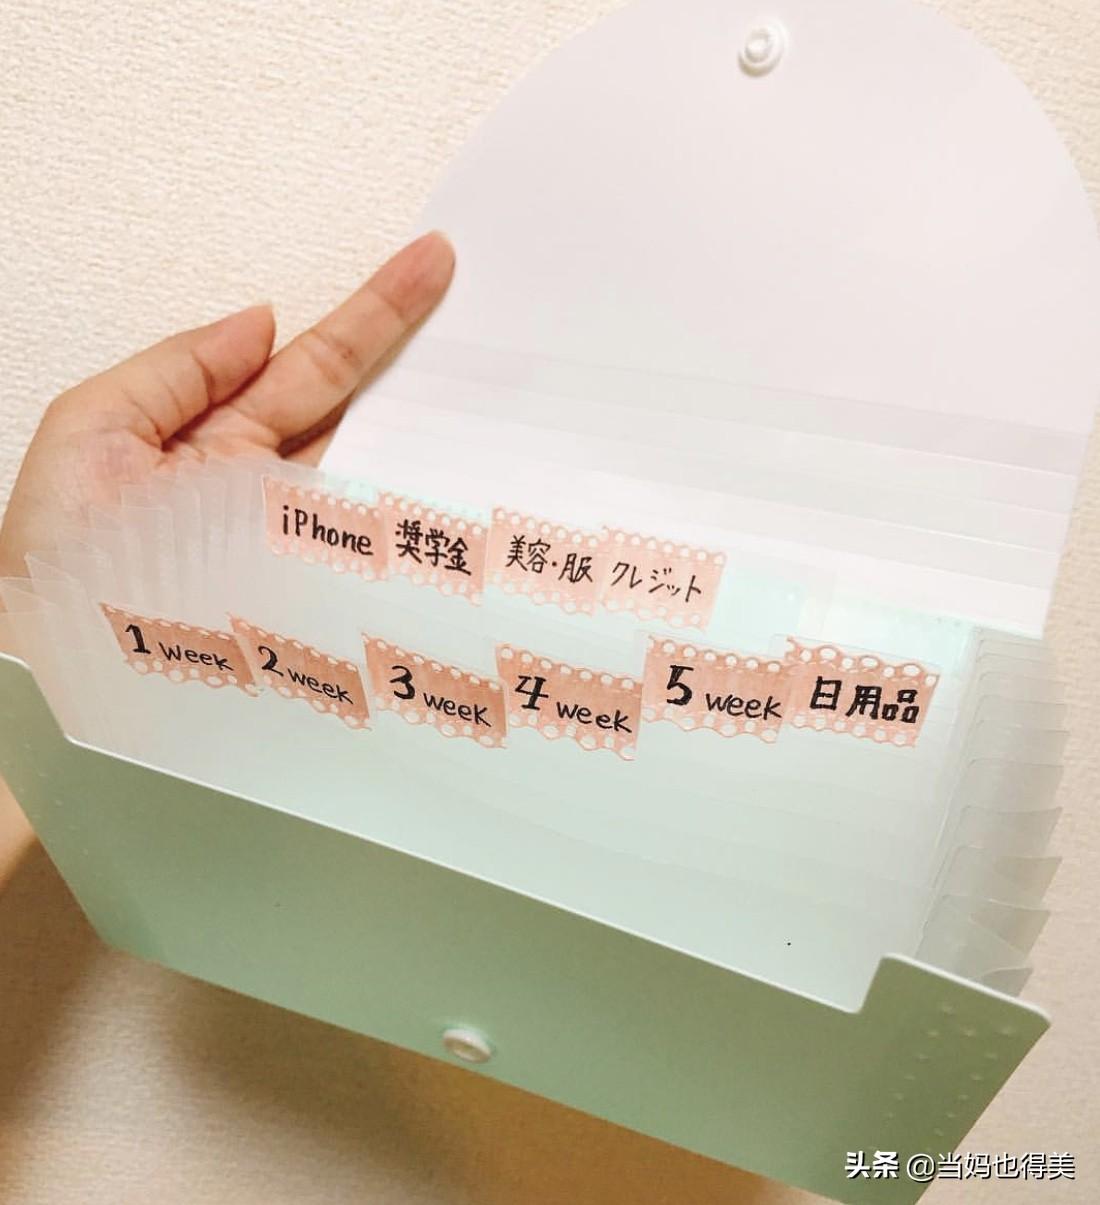 iPhone 奨学金 美容・服 クレジット
1 week 2 week 3 week 4 week 5 week 日用品
头条 @当妈也得美